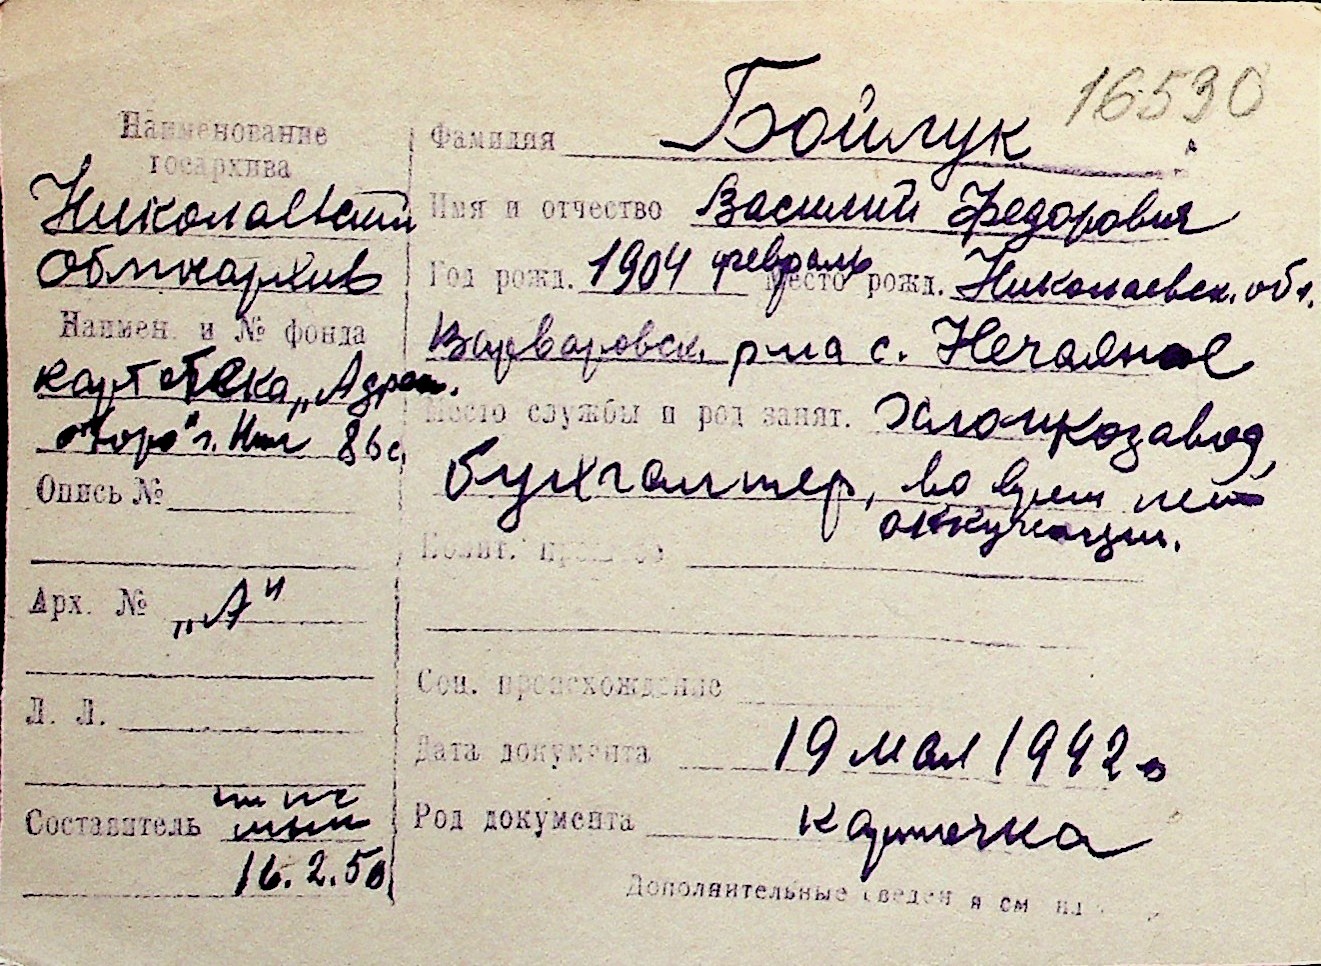 16530
Наименование
госархива
Николаевский
Облгосархив
Наимен. и № фонда
картотека „Адресн.
стола" г. Ник
Опись №
Арх. № „А"
Л. Л.
Составитель
16.2.50
Фамилия Бойчук
Имя и отчество Василий Федорович
Год рожд. 1904 февраль Место рожд. Николаевск. обл.
Варваровск. р-на с. Нечаяное
Место службы и род занят. Хлопкозавод,
бухгалтер, во время нем
оккупации.
Полит. прошлое
Соц. происхождение
Дата документа 19 мая 1942 г.
Род документа карточка
Дополнительные сведения см на